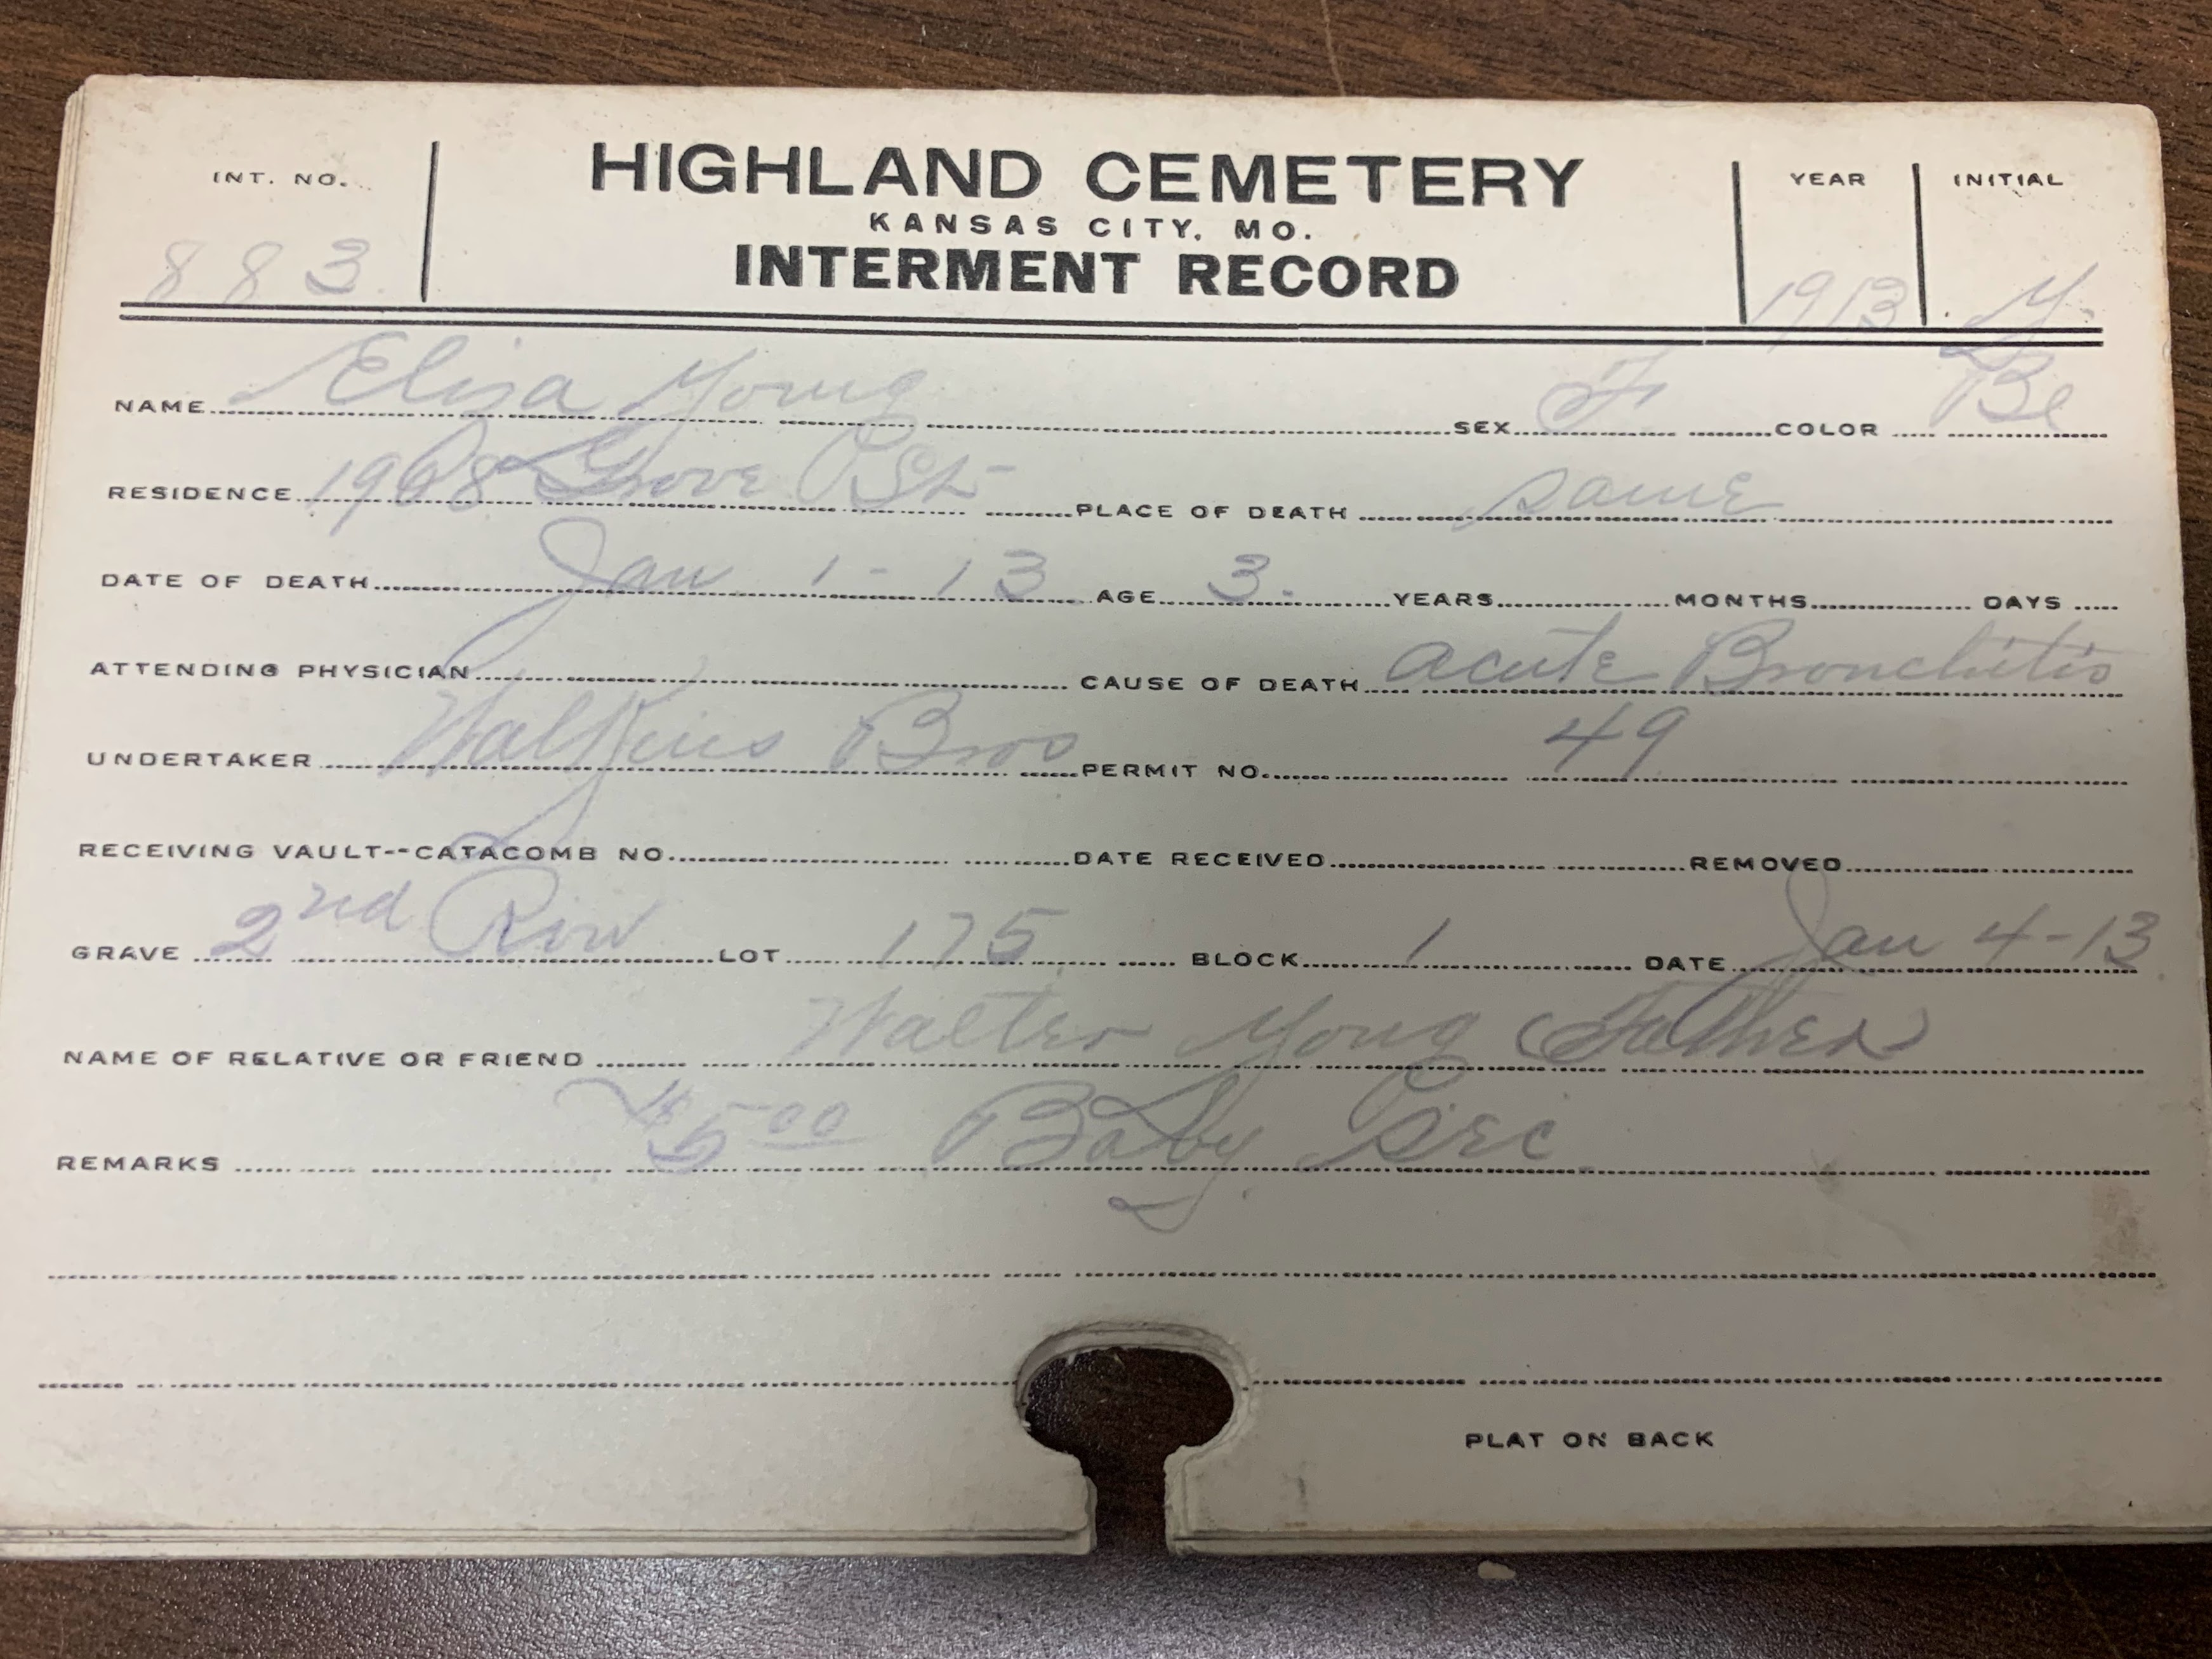 INT. NO. HIGHLAND CEMETERY YEAR INITIAL
KANSAS CITY, MO.
883 INTERMENT RECORD 1913 Y.
NAME Elisa Young SEX F. COLOR Bl
RESIDENCE 1908 Grove St- PLACE OF DEATH same
DATE OF DEATH Jan 1-13 AGE 3. YEARS MONTHS DAYS
ATTENDING PHYSICIAN CAUSE OF DEATH acute Bronchitis
UNDERTAKER Watkins Bros PERMIT NO. 49
RECEIVING VAULT--CATACOMB NO. DATE RECEIVED REMOVED
GRAVE 2nd Row LOT 175 BLOCK 1 DATE Jan 4-13
NAME OF RELATIVE OR FRIEND Walter Young (Father)
REMARKS $5.00 Baby Sec
PLAT ON BACK